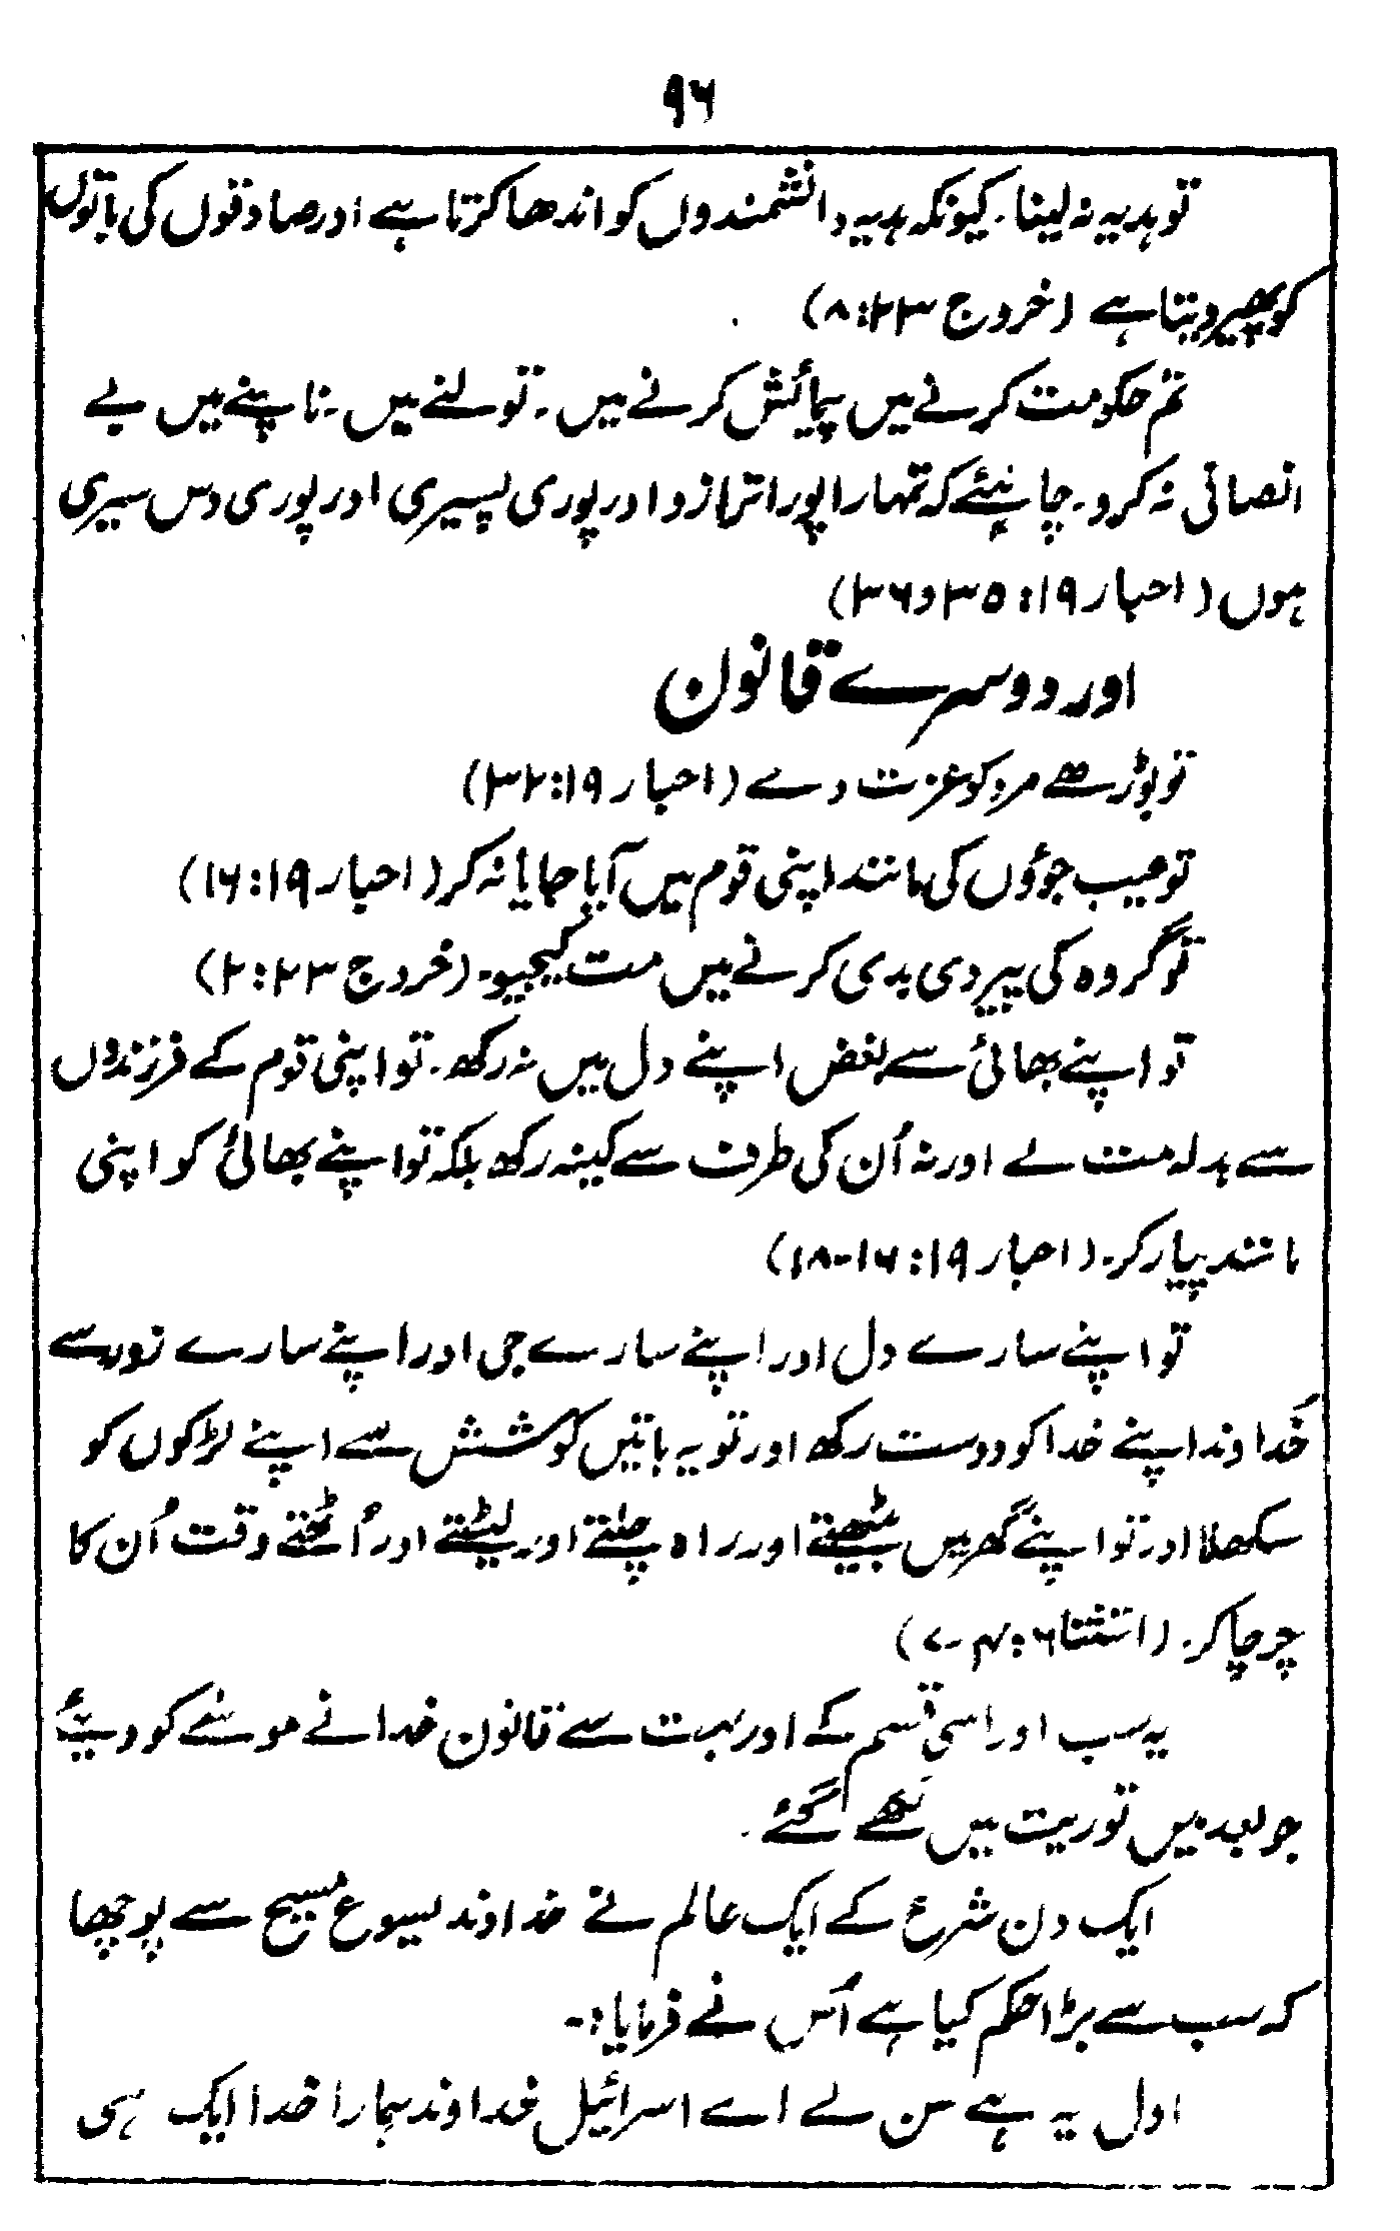 ۹۶
تو ہدیہ نہ لینا۔ کیونکہ ہدیہ دانشمندوں کو اندھا کرتا ہے اور صادقوں کی باتوں
کو پھیر دیتا ہے (خروج ۲۳:۸)
تم حکومت کرنے میں پیمائش کرنے میں۔ تولنے میں۔ ناپنے میں بے
انصافی نہ کرو۔ چاہئیے کہ تمہارا پورا ترازو اور پوری پسیری اور پوری دس سیری
ہوں (احبار ۱۹:۳۵ و۳۶)
اور دوسرے قانون
تو بوڑھے مرد کو عزت دے (احبار ۱۹:۳۲)
تو عیب جوؤں کی مانند اپنی قوم میں آیا جایا نہ کر (احبار ۱۹:۱۶)
تو گروہ کی پیروی بدی کرنے میں مت کیجیو۔ (خروج ۲۳:۲)
تو اپنے بھائی سے بغض اپنے دل میں نہ رکھ۔ تو اپنی قوم کے فرزندوں
سے بدلہ مت لے اور نہ اُن کی طرف سے کینہ رکھ بلکہ تو اپنے بھائی کو اپنی
مانند پیار کر۔ (احبار ۱۹:۱۶-۱۸)
تو اپنے سارے دل اور اپنے سارے جی اور اپنے سارے زور سے
خُداوند اپنے خدا کو دوست رکھ اور تو یہ باتیں کوشش سے اپنے لڑکوں کو
سکھلا اور تو اپنے گھر میں بیٹھتے اور راہ چلتے اور لیٹتے اور اُٹھتے وقت اُن کا
چرچا کر۔ (استثنا ۶:۴-۷)
یہ سب اور اسی قسم کے اور بہت سے قانون خدا نے موسٰے کو دیئے
جو بعد میں توریت میں لکھے گئے۔
ایک دن شرع کے ایک عالم نے خداوند یسوع مسیح سے پوچھا
کہ سب سے بڑا حکم کیا ہے اُس نے فرمایا:-
اول یہ ہے سن لے اے اسرائیل خداوند ہمارا خدا ایک ہی